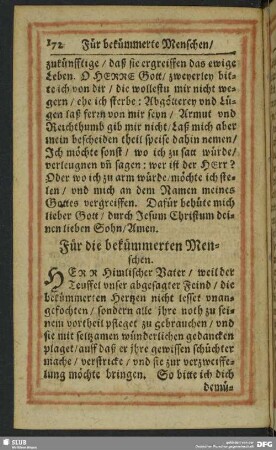 172 Für bekümmerte Menschen/
zukünfftige/ daß sie ergreiffen das ewige
Leben. O HERRE Gott/ zweyerley bit-
te ich von dir/ die wollestu mir nicht we-
gern/ ehe ich sterbe: Abgötterey vnd Lü-
gen laß fern von mir seyn/ Armut vnd
Reichthumb gib mir nicht/ Laß mich aber
mein bescheiden theil speise dahin nemen/
Ich möchte sonst/ wo ich zu satt würde/
verleugnen vñ sagen: wer ist der HErr?
Oder wo ich zu arm würde/ möchte ich ste-
len/ vnd mich an dem Namen meines
Gottes vergreiffen. Dafür behüte mich
lieber Gott/ durch Jesum Christum dei-
nen lieben Sohn/ Amen.
Für die bekümmerten Men-
schen.
HERR Himlischer Vater/ weil der
Teuffel vnser abgesagter Feind/ die
bekümmerten Hertzen nicht lesset vnan-
gefochten/ sondern alle jhre noth zu sei-
nem vortheil pfleget zu gebrauchen/ vnd
sie mit seltzamen wünderlichen gedancken
plaget/ auff daß er jhre gewissen schüchter
mache/ verstricke/ vnd sie zur verzweiffe-
lung möchte bringen. So bitte ich dich
demü-
SLUB
DFG